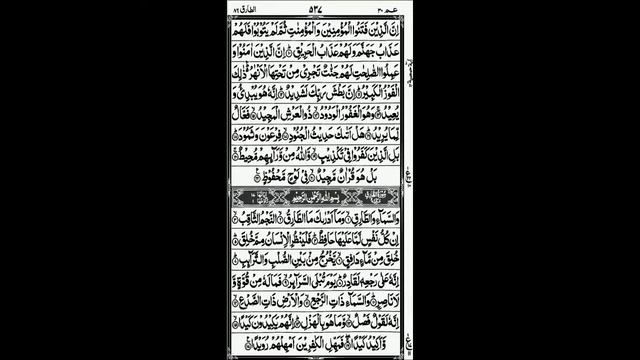 الطارق ٨٦ ٥٣٧ عم ٣٠
اِنَّ الَّذِيْنَ فَتَنُوا الْمُؤْمِنِيْنَ وَالْمُؤْمِنٰتِ ثُمَّ لَمْ يَتُوْبُوْا فَلَهُمْ
عَذَابُ جَهَنَّمَ وَلَهُمْ عَذَابُ الْحَرِيْقِ اِنَّ الَّذِيْنَ اٰمَنُوْا وَ
عَمِلُوا الصّٰلِحٰتِ لَهُمْ جَنّٰتٌ تَجْرِيْ مِنْ تَحْتِهَا الْاَنْهٰرُ ذٰلِكَ
الْفَوْزُ الْكَبِيْرُ اِنَّ بَطْشَ رَبِّكَ لَشَدِيْدٌ اِنَّهٗ هُوَ يُبْدِئُ وَ
يُعِيْدُ وَهُوَ الْغَفُوْرُ الْوَدُوْدُ ذُو الْعَرْشِ الْمَجِيْدُ فَعَّالٌ
لِّمَا يُرِيْدُ هَلْ اَتٰىكَ حَدِيْثُ الْجُنُوْدِ فِرْعَوْنَ وَثَمُوْدَ
بَلِ الَّذِيْنَ كَفَرُوْا فِيْ تَكْذِيْبٍ وَّاللّٰهُ مِنْ وَّرَآئِهِمْ مُّحِيْطٌ
بَلْ هُوَ قُرْاٰنٌ مَّجِيْدٌ فِيْ لَوْحٍ مَّحْفُوْظٍ
بِسْمِ اللّٰهِ الرَّحْمٰنِ الرَّحِيْمِ
وَالسَّمَآءِ وَالطَّارِقِ وَمَآ اَدْرٰىكَ مَا الطَّارِقُ النَّجْمُ الثَّاقِبُ
اِنْ كُلُّ نَفْسٍ لَّمَّا عَلَيْهَا حَافِظٌ فَلْيَنْظُرِ الْاِنْسَانُ مِمَّ خُلِقَ
خُلِقَ مِنْ مَّآءٍ دَافِقٍ يَّخْرُجُ مِنْۢ بَيْنِ الصُّلْبِ وَالتَّرَآئِبِ
اِنَّهٗ عَلٰى رَجْعِهٖ لَقَادِرٌ يَوْمَ تُبْلَى السَّرَآئِرُ فَمَا لَهٗ مِنْ قُوَّةٍ وَّ
لَا نَاصِرٍ وَالسَّمَآءِ ذَاتِ الرَّجْعِ وَالْاَرْضِ ذَاتِ الصَّدْعِ
اِنَّهٗ لَقَوْلٌ فَصْلٌ وَّمَا هُوَ بِالْهَزْلِ اِنَّهُمْ يَكِيْدُوْنَ كَيْدًا
وَّاَكِيْدُ كَيْدًا فَمَهِّلِ الْكٰفِرِيْنَ اَمْهِلْهُمْ رُوَيْدًا